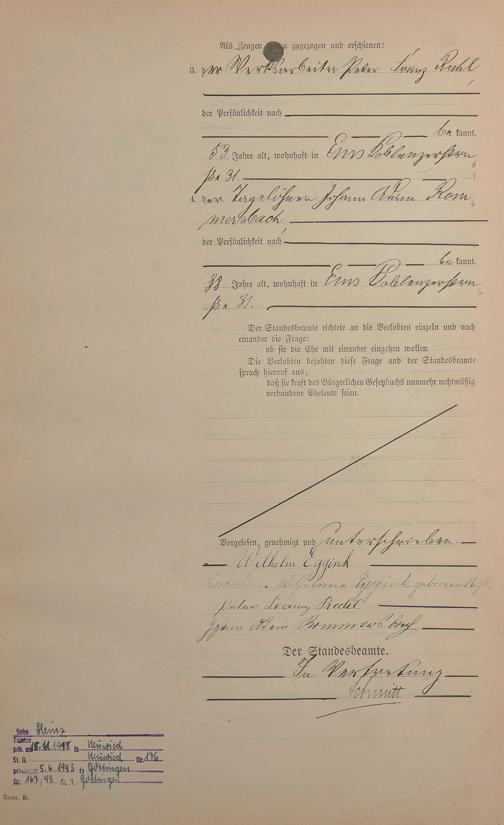 Als Zeugen waren zugezogen und erschienen:
3. der Werksarbeiter Peter Franz Redel,
der Persönlichkeit nach
bekannt,
53 Jahre alt, wohnhaft in Ems Koblenzerstra-
ße 31
4. der Tagelöhner Johann Adam Rom-
mersbach,
der Persönlichkeit nach
bekannt,
33 Jahre alt, wohnhaft in Ems Koblenzerstra-
ße 31.
Der Standesbeamte richtete an die Verlobten einzeln und nach
einander die Frage:
ob sie die Ehe mit einander eingehen wollen.
Die Verlobten bejahten diese Frage und der Standesbeamte
sprach hierauf aus,
daß sie kraft des Bürgerlichen Gesetzbuchs nunmehr rechtmäßig
verbundene Eheleute seien.
Vorgelesen, genehmigt und unterschrieben.
Wilhelm Eggink
Eggink geborene
Peter Franz Redel
Johann Adam Rommersbach
Der Standesbeamte.
In Vertretung
Schmitt
Sohn Heinz
Tochter
geb. am 18.11.1918 in Neuwied
St. A. Neuwied Nr. 176
geheiratet 5.6.1943 in Göttingen
Nr. 167/43 St. A. Göttingen
Form. B.